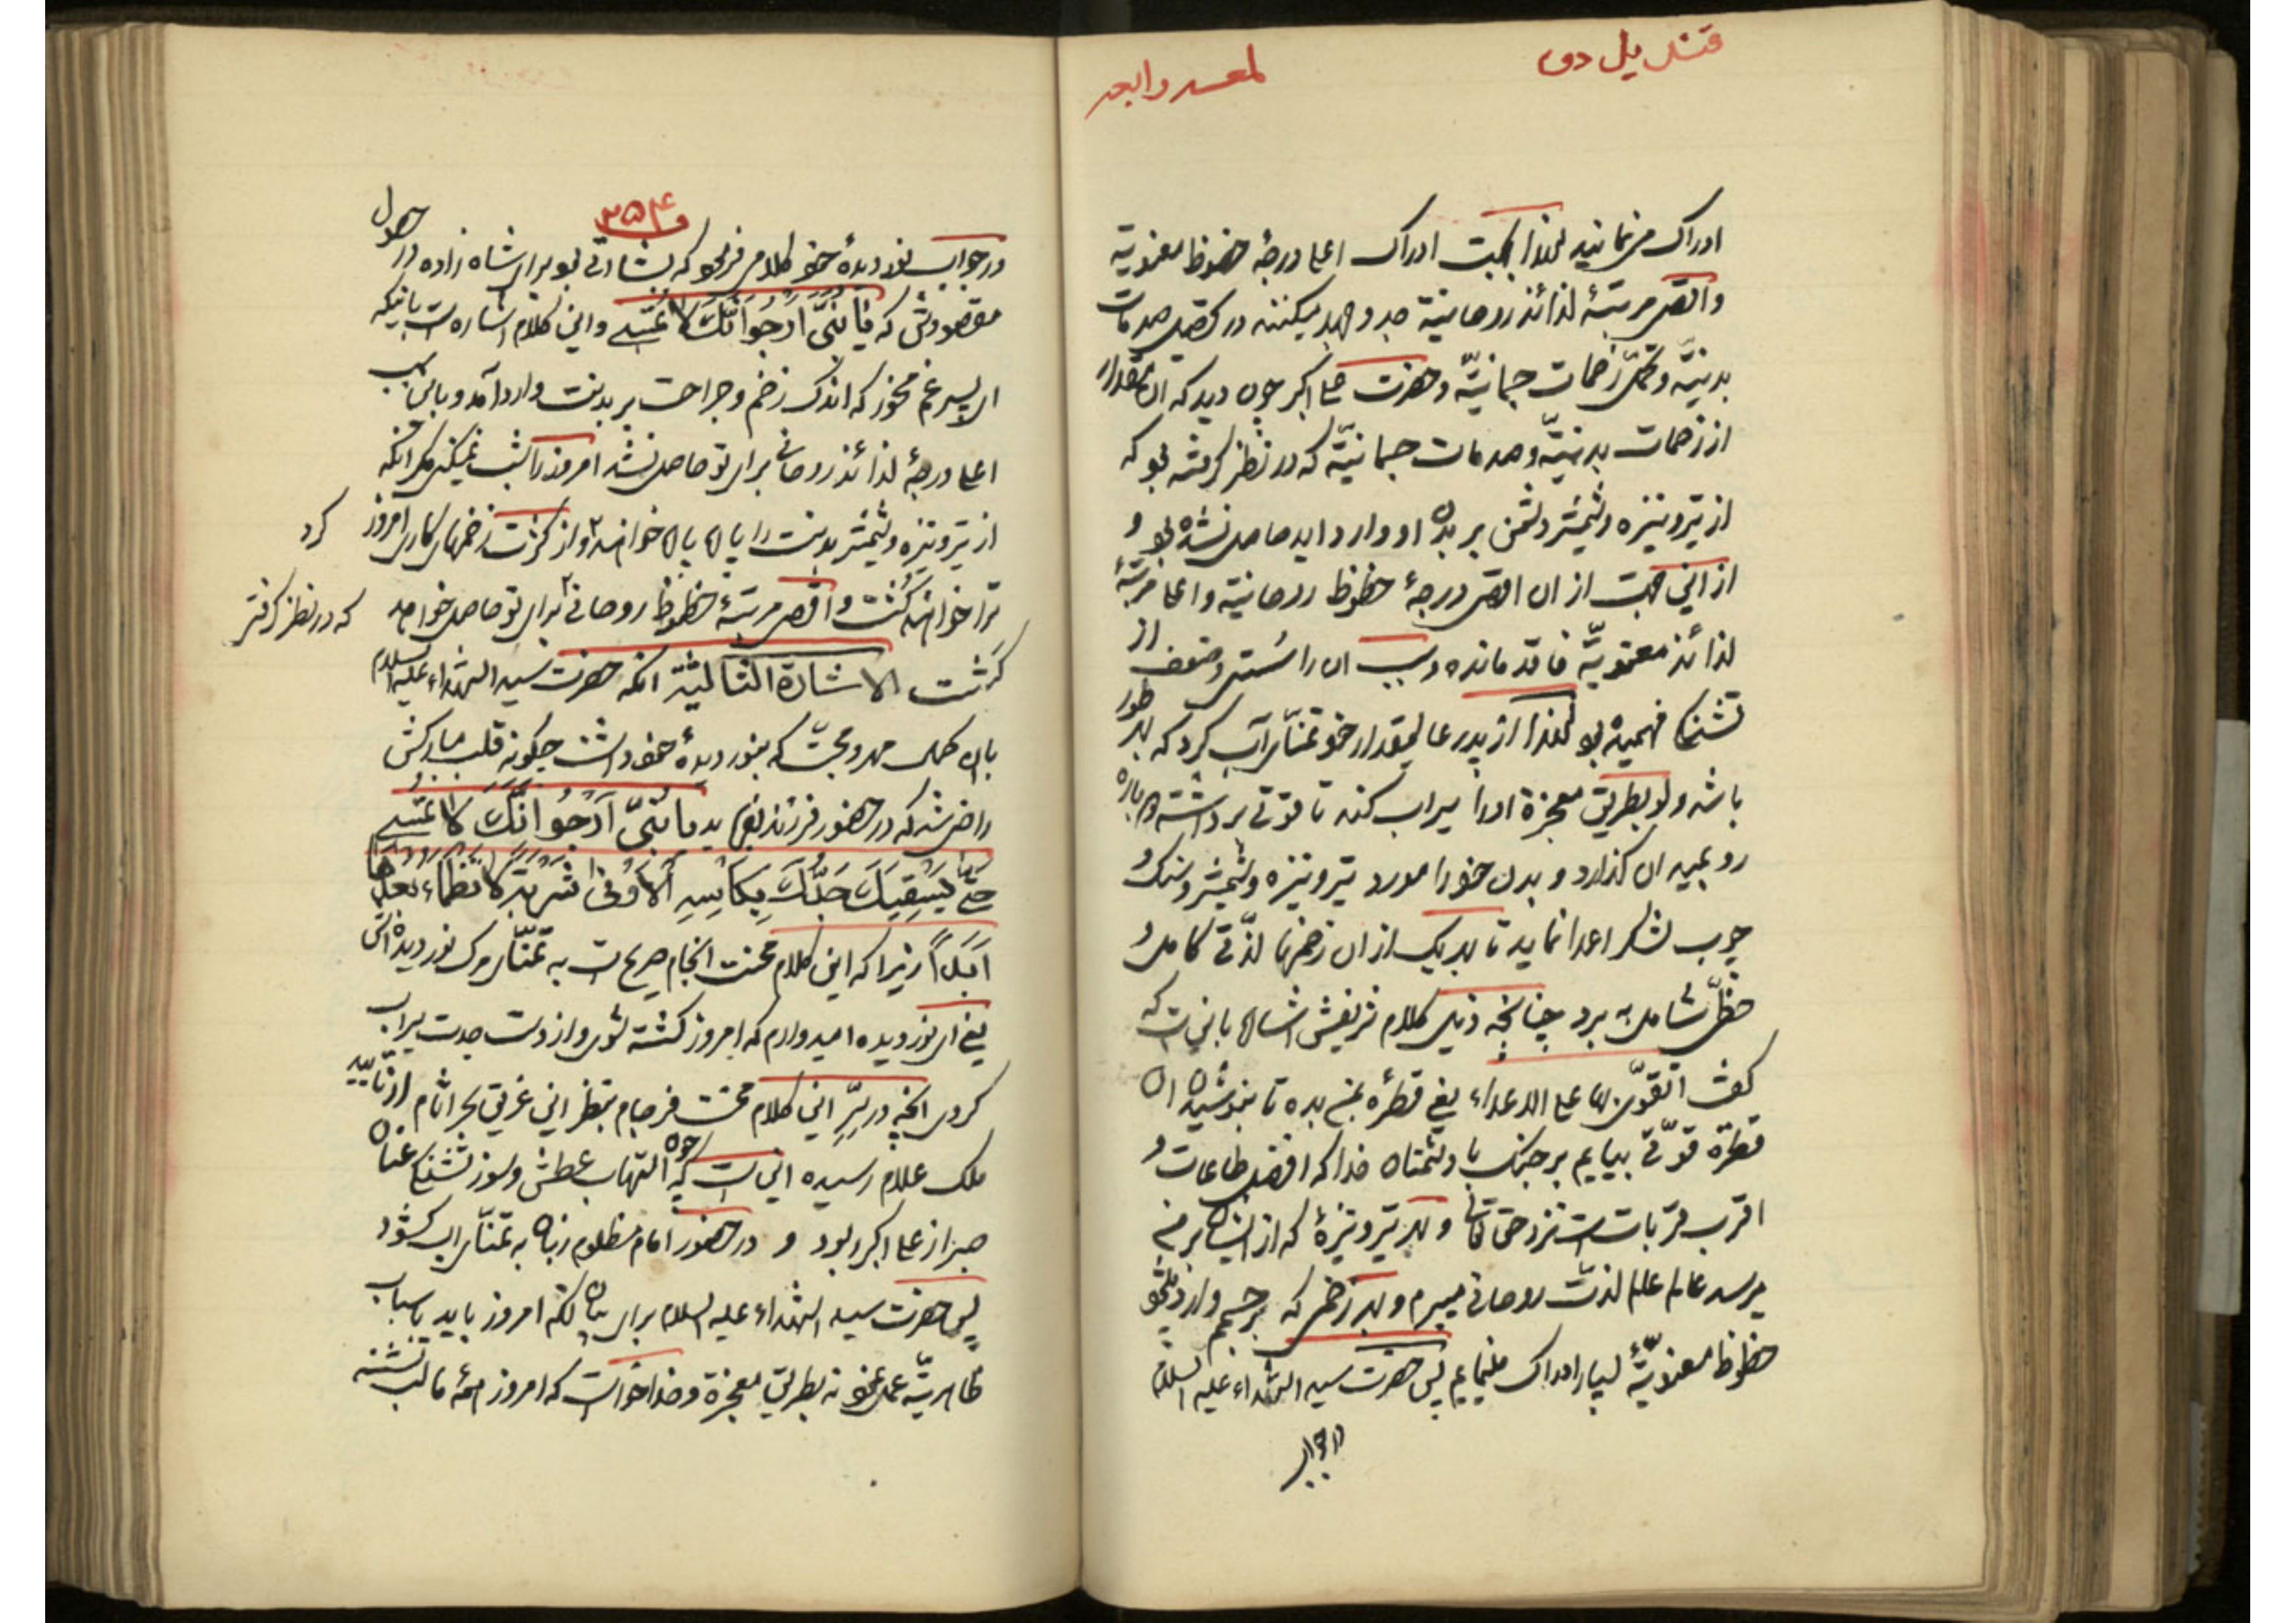 ادراک مینمایند لهذا بجهت ادراک اعلا درجهٔ حظوظ معنویّة
واقصی مرتبهٔ لذائذ روحانیة جد و جهد میکنند در تحصیل صدمات
بدنیّه وتحمّل زخمات جسمانیّه وحضرت علی اکبر چون دید که ان مقدار
از زخمات بدنیّه وصدمات جسمانیّه که در نظر گرفته بود که
از تیر و نیزه وشمشیر دشمن بر بدن او وارد اید حاصل نشده بود و
از این جهت از ان اقصی درجهٔ حظوظ روحانیّة واعلا مرتبهٔ
لذائذ معنویّة فاقد مانده وسبب ان را سستی وضعف از
تشنگی فهمیده بود لهذا از پدر عالیمقدار خود تمنّای آب کرد که بهر طور
باشد ولو بطریق معجزة اورا سیراب کند تا قوتی برداشته دوباره
رو بمیدان گذارد و بدن خود را مورد تیر و نیزه وشمشیر وسنگ و
چوب لشکر اعدا نماید تا بهر یک از ان زخمها لذّتی کامل و
حظّی شامل به برد چنانچه ذیل کلام شریفش اشاره باین است که
گفت اتقوّی بها علی الاعداء یعنی قطرهٔ بمن بده تا بنوشیدن ان
قطرة قوّتی بیابم بر جنگ با دشمنان خدا که افضل طاعات و
اقرب قربات است نزد حق تعالی و بهر تیر و نیزهٔ که از ایشان بر من
میرسد عالم عالم لذت روحانی میبرم و بهر زخمی که بر جسمم وارد میشود
حظوظ معنویّهٔ بسیار ادراک مینمایم پس حضرت سید الشهداء علیه السلام
در جواب
۲۵۴
در جواب نور دیدهٔ خود کلامی فرمود که بشارتی بود برای شاه زاده در حصول
مقصودش که یَا بُنَیَّ اَرْجُوا اَنَّکَ لَا تُمْسِی واین کلام اشاره است باینکه
ای پسر غم مخور که اندک زخم وجراحت بر بدنت وارد آمد و باین سبب
اعلا درجهٔ لذائذ روحانی برای تو حاصل نشد امروز را شب نمیکنی مگر انکه
از تیر ونیزه وشمشیر بدنت را پاره پاره خواهند کرد واز کثرت زخمهای کاری امروز
ترا خواهند کشت واقصی مرتبهٔ حظوظ روحانی که در نظر گرفته برای تو حاصل خواهد
گشت الاشارة الثالثة انکه حضرت سید الشهداء علیه السلام
بان همه مهر ومحبّت که بنور دیدهٔ خود داشت چگونه قلب مبارکش
راضی شد که در حضور فرزند بفرماید یا بُنَیَّ اَرْجُوا اَنَّکَ لَا تُمْسِی
حَتّی یَسْقِیَکَ جَدُّکَ بِکَأسِهِ الْاَوْفی شَرْبَةً لَا تَظْمَاُ بَعْدَهَا
اَبَداً زیرا که این کلام محنت انجام صریح است به تمنّای مرگ نور دیده اش
یعنی ای نور دیده امیدوارم که امروز کشته شوی واز دست جدت سیراب
گردی انچه در سِرّ این کلام محنت فرجام بنظر این غریق بحر اثام از تایید
ملک علام رسیده این است که چون التهاب عطش وسوز تشنگی عنان
صبر از علی اکبر ربود و در حضور امام مظلوم زبان به تمنّای اب گشود
پس حضرت سید الشهداء علیه السلام برای بیان انکه امروز باید باسباب
ظاهریّه عمل نمود نه بطریق معجزة و خدا خواست که امروز همهٔ ما لب تشنه